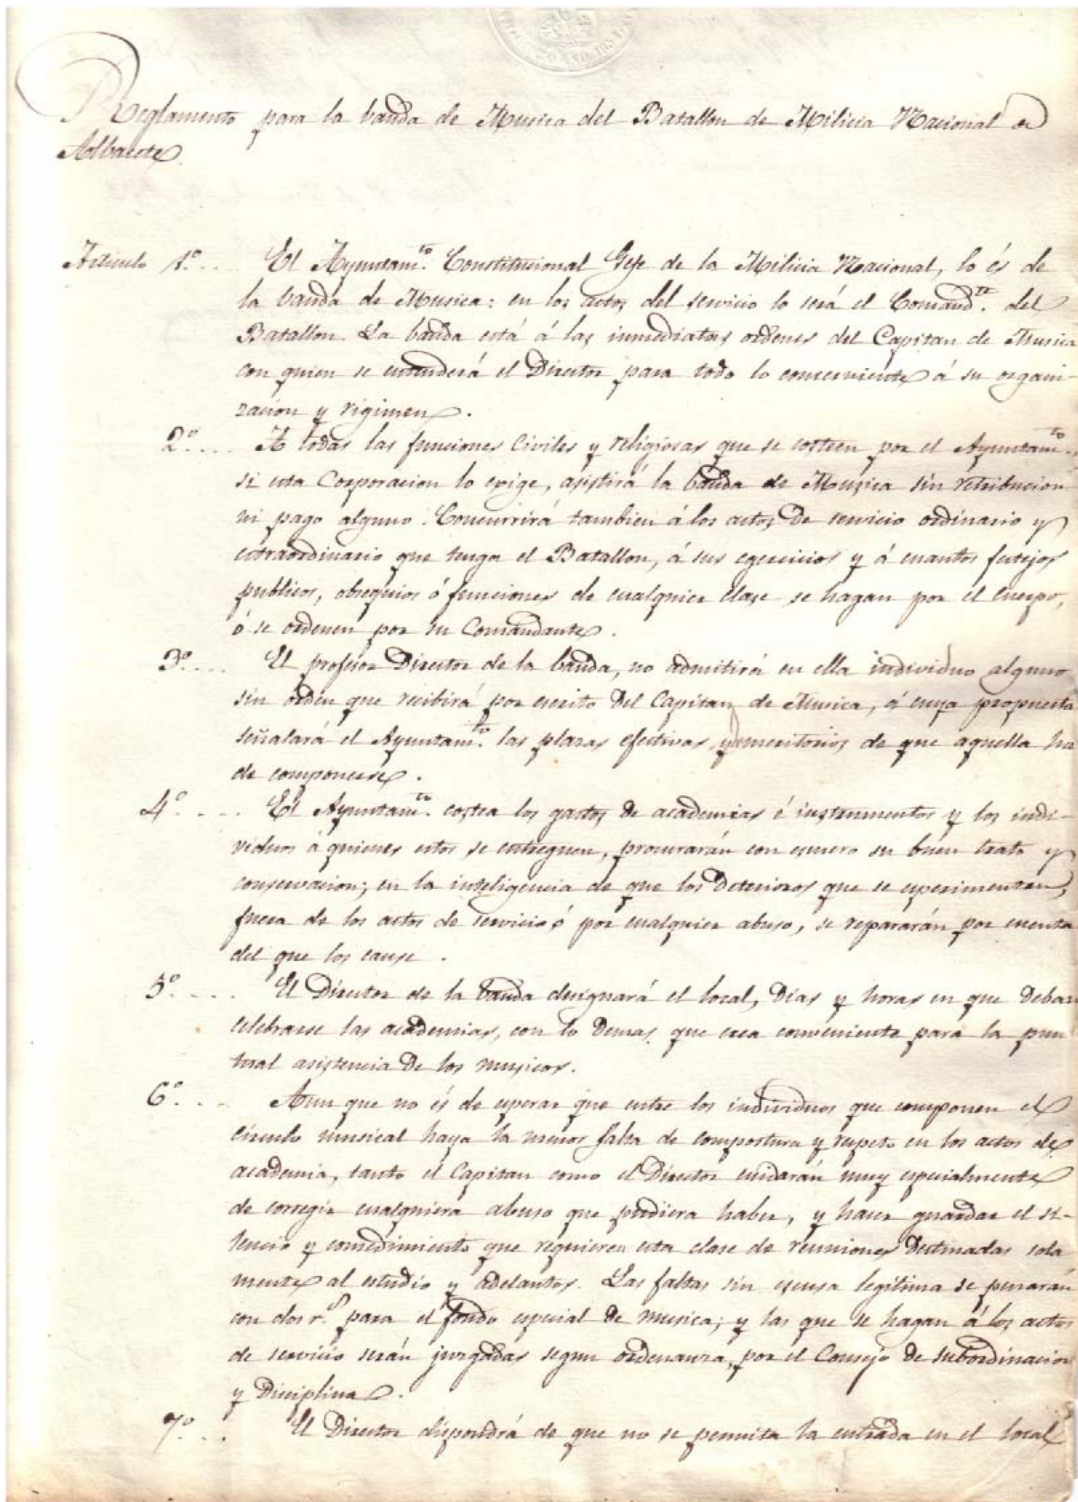 Reglamento para la banda de Musica del Batallon de Milicia Nacional de
Albacete.
Articulo 1º.... El Ayuntam.to Constitucional Gefe de la Milicia Nacional, lo és de
la banda de Musica: en los actos del servicio lo será el Comand.te del
Batallon. La banda está á las inmediatas ordenes del Capitan de Musica
con quien se entenderá el Director para todo lo concerniente á su organi-
zacion y régimen.
2º.... A todas las funciones civiles y religiosas que se costeen por el Ayuntam.to
si esta Corporacion lo exige, asistirá la banda de Musica sin retribucion
ni pago alguno. Concurrirá tambien á los actos de servicio ordinario y
extraordinario que tenga el Batallon, á sus egercicios y á cuantos festejos
publicos, obsequios ó funciones de cualquier clase se hagan por el cuerpo,
ó se ordenen por su Comandante.
3º.... El profesor Director de la banda, no admitirá en ella individuo alguno
sin orden que recibirá por escrito del Capitan de Musica, á cuya propuesta
señalará el Ayuntam.to las plazas efectivas y meritorios de que aquella ha
de componerse.
4º.... El Ayuntam.to costea los gastos de academias é instrumentos y los indi-
viduos á quienes estos se entreguen, procurarán con esmero su buen trato y
conservacion; en la inteligencia de que los deterioros que se esperimenten,
fuera de los actos de servicio ó por cualquier abuso, se repararán por cuenta
del que los cause.
5º.... El Director de la banda designará el local, dias y horas en que deban
celebrarse las academias, con lo demas que crea conveniente para la pun
tual asistencia de los musicos.
6º... Aun que no és de esperar que entre los individuos que componen el
circulo musical haya la menor falta de compostura y respeto en los actos de
academia, tanto el Capitan como el Director cuidarán muy especialmente
de corregir cualquiera abuso que pudiera haber, y hacer guardar el si-
lencio y comedimiento que requieren esta clase de reuniones destinadas sola
mente al estudio y adelantos. Las faltas sin escusa legitima se penarán
con dos r.s para el fondo especial de musica; y las que se hagan á los actos
de servicio serán juzgadas segun ordenanza, por el Consejo de subordinacion
y Disciplina.
7º... El Director dispondrá de que no se permita la entrada en el local